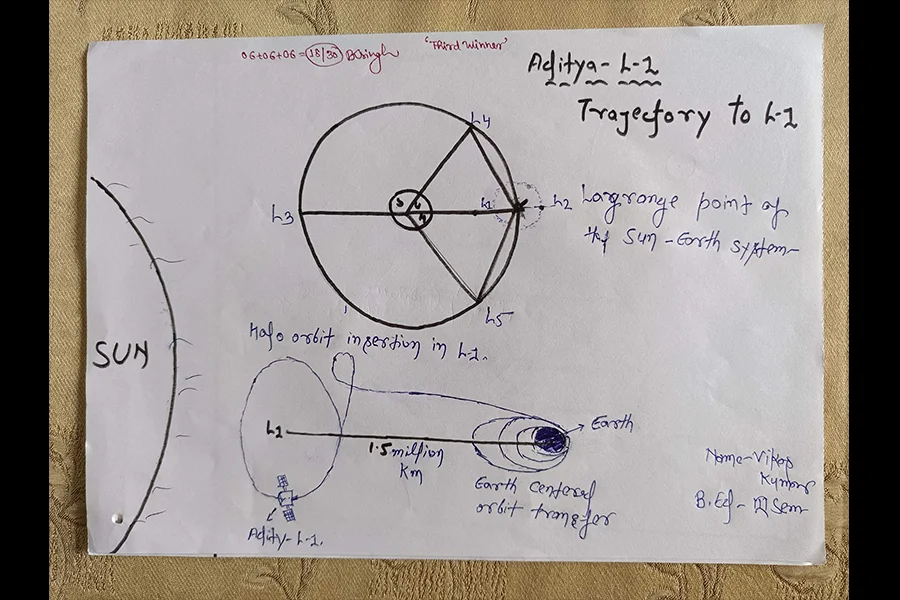 06+06+06=18/30 BBsingh
'Third Winner'
Aditya-L-1
Trajectory to L-1
L4
L3
SUN
L1
L2
Largrange point of
the Sun-Earth system-
L5
Halo orbit insertion in L1.
SUN
L1
1.5 million
Km
Earth
Earth centered
orbit transfer
Adity-L-1.
Name-Vikas
Kumar
B.Ed- III Sem